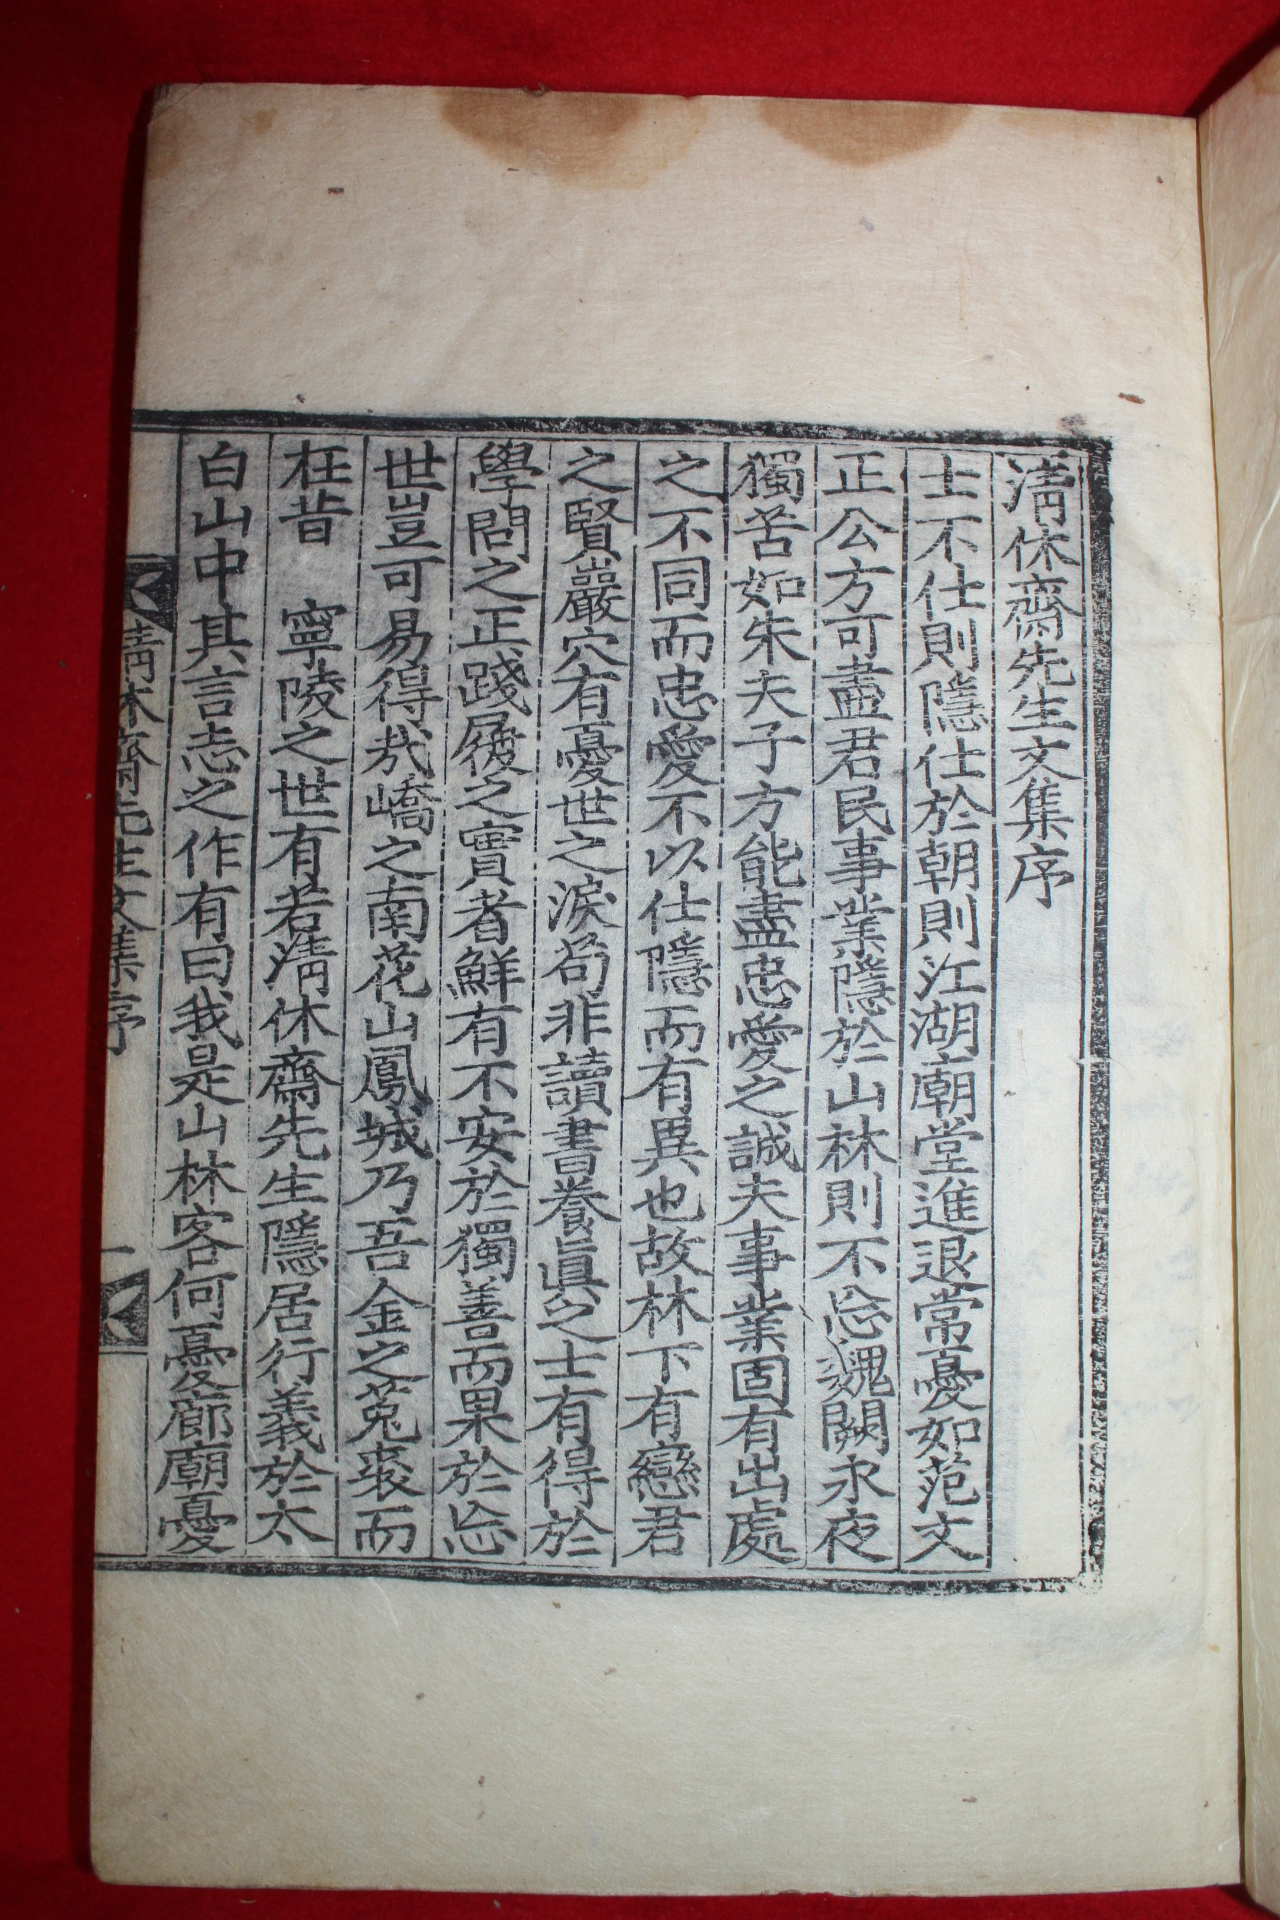 清休齋先生文集序
士不仕則隱仕於朝則江湖廟堂進退常憂如范文
正公方可盡君民事業隱於山林則不忘魏闕永夜
獨苦如朱夫子方能盡忠愛之誠夫事業固有出處
之不同而忠愛不以仕隱而有異也故林下有戀君
之賢巖穴有憂世之淚苟非讀書養眞之士有得於
學問之正踐履之實者鮮有不安於獨善而果於忘
世豈可易得㢤嶠之南花山鳳城乃吾金之菟裘而
在昔 寧陵之世有若清休齋先生隱居行義於太
白山中其言志之作有曰我是山林客何憂廊廟憂
清休齋先生文集序 一